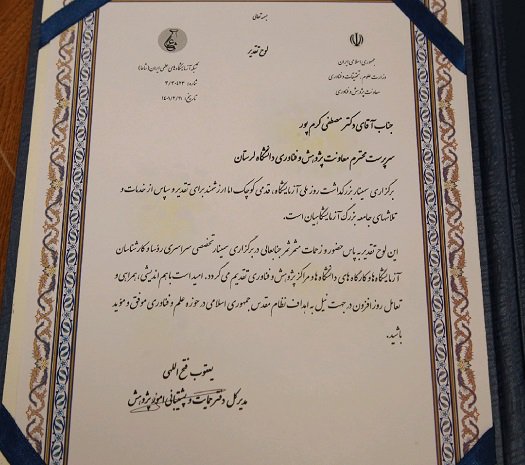 بسمه تعالی
لوح تقدیر
جمهوری اسلامی ایران
وزارت علوم، تحقیقات و فناوری
معاونت پژوهش و فناوری
شبکه آزمایشگاه‌های علمی ایران (شاعا)
شماره: ۳/۳۰۴۷۳
تاریخ: ۱۴۰۱/۲/۲۱
جناب آقای دکتر مصطفی کرم پور
سرپرست محترم معاونت پژوهش و فناوری دانشگاه لرستان
برگزاری سمینار بزرگداشت روز ملی آزمایشگاه، قدمی کوچک اما ارزشمند برای تقدیر و سپاس از خدمات و
تلاشهای جامعه بزرگ آزمایشگاهیان است.
این لوح تقدیر به پاس حضور و زحمات مثمرثمر جنابعالی در برگزاری سمینار تخصصی سراسری رؤسا و کارشناسان
آزمایشگاه‌ها و کارگاه های دانشگاه ها و مراکز پژوهش و فناوری تقدیم می گردد. امید است با هم اندیشی، همراهی و
تعامل روز افزون در جهت نیل به اهداف نظام مقدس جمهوری اسلامی در حوزه علم و فناوری موفق و مؤید
باشید.
یعقوب فتح اللهی
مدیر کل دفتر حمایت و پشتیبانی امور پژوهش